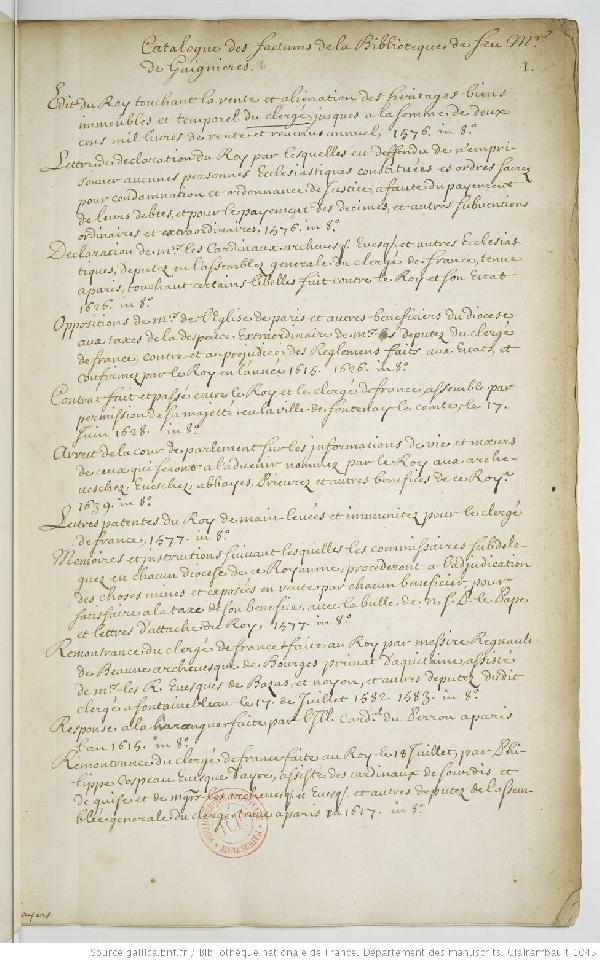 Catalogue des factums de la Biblioteque de feu Mr.
de Gaignieres.
1.
Edit du Roy touchant la vente et alienation des heritages biens
immeubles et temporel du clergé, jusques a la somme de deux
cens mil livres de rente et revenus annuel, 1576. in 8º
Lettre de declaration du Roy par lesquelles est deffendu de n'empri-
sonner aucunes personnes Ecclesiastiques constituées es ordres sacrez
pour condamnation et ordonnance de Justice, a faute du payement
de leurs debtes, et pour le payement des decimes, et autres subventions
ordinaires et extraordinaires, 1576. in 8º
Declaration de mrs. les Cardinaux, archevesq. Evesq. et autres Ecclesias
tiques, deputez en l'assemblée generale du clergé de france, tenue
a paris, touchant certains libelles fait contre le Roy et son Estat
1626. in 8º
Oppositions de mrs. de l'Eglise de paris et autres beneficiers du diocese
aux taxes de la despence Extraordinaire de mrs. deputez du clergé
de france, contre et au prejudice des Reglemens faits aux Etats, et
confirmez par le Roy en l'année 1615. 1626. in 8º
Contrat fait et passé entre le Roy et le clergé de france, assemblé par
permission de sa majesté en la ville de fontenay le comte, le 17.
Juin 1628. in 8º
Arrest de la cour de parlement sur les informations de vie et mœurs
de ceux qui seront a l'advenir nommez par le Roy aux arche-
veschez, Eveschez, abbayes, Prieurez et autres benefices de ce Roy.e
1639. in 8º
Lettres patentes du Roy de main-levées et immunitez pour le clergé
de france, 1577. in 8º
Memoires et instructions suivant lesquelles les commissaires subdele-
guez en chacun diocese de ce Royaume, procederont a l'adjudication
des choses mises et exposées en vente par chacun beneficier, pour
satisfaire a la taxe de son benefice, avec la bulle de n. S. P. le Pape
et lettres d'attache du Roy, 1577. in 8º
Remontrance du clergé de france faite au Roy par messire Regnault
de Beaune archevesque de Bourges primat d'aquitaine, assisté
de mrs. les R. Evesques de Bazas, et noyon, et autres deputez dudit
clergé a fontainebleau le 17. de Juillet 1582. 1583. in 8º
Response a la harangue faite par Ill. Card.l du Perron a paris
l'an 1615. in 8º
Remontrance du clergé de france faite au Roy le 18 Juillet, par Phi-
lippe Cospeau Evesque d'ayre, assisté des cardinaux de sourdis et
de guise et de mgrs. les archevesq. et Evesq. et autres deputez de l'assem-
blée generale du clergé tenue a paris 1617. in 8º
Source gallica.bnf.fr / Bibliothèque nationale de France. Département des manuscrits. Clairambault 1045